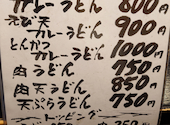 カレーうどん 800円
えび天カレーうどん 900円
とんかつカレーうどん 1000円
肉うどん 750円
肉天うどん 850円
天ぷらうどん 750円
トッピング